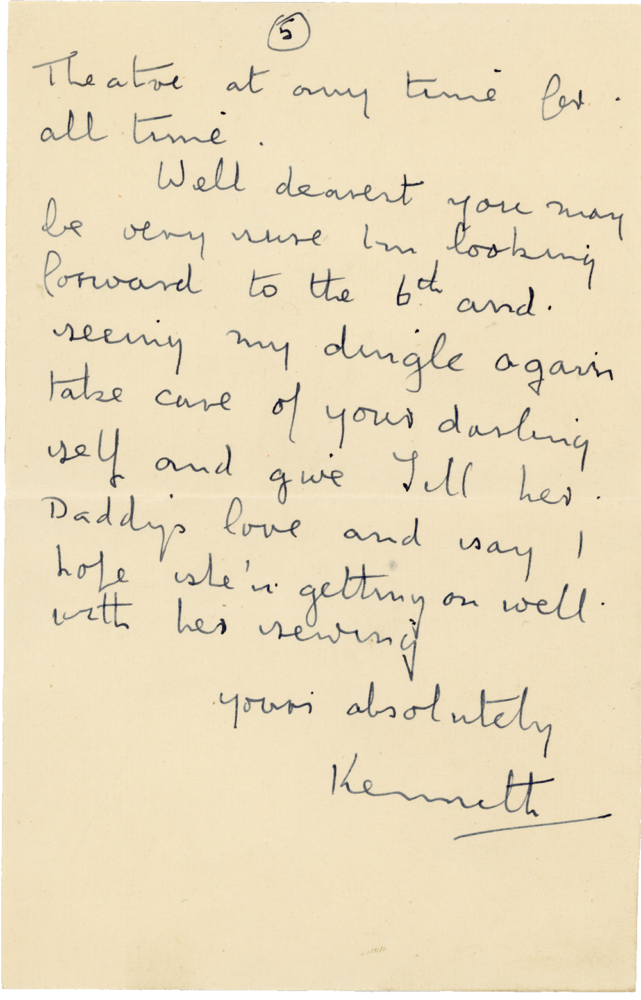 5
Theatre at any time for
all time.
Well dearest you may
be very sure I'm looking
forward to the 6th and
seeing my dingle again
take care of your darling
self and give Jill her
Daddy's love and say I
hope she's getting on well
with her sewing
yours absolutely
Kenneth